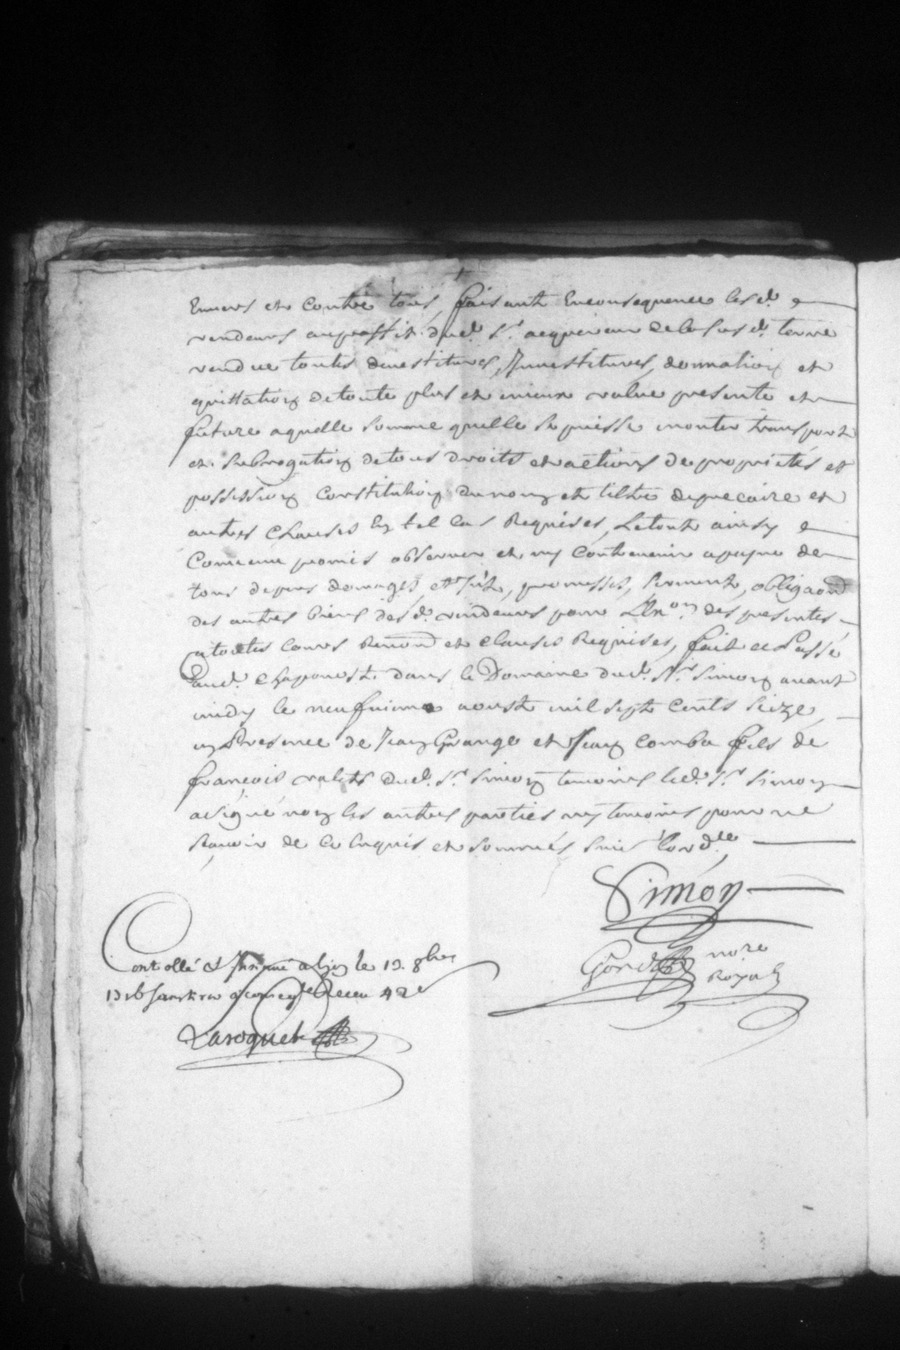 Envers et contre tous, faisants En consequence lesd.
vendeurs au proffit dud. Sr. acquereur de la susd. terre
vendue toutes devestitures, Jnvestitures, donnation et
quittation de toute plus et mieux value presente et
future a quelle somme quelle se puisse monter transport
et subrogation de tous droits et actions de proprietés et
possession Constitution du nom et tiltre de precaire et
autres Clauses En tel cas Requises, Le tout ainsy
Comme promis observer et ny Contrevenir a peyne de
tous depens domages, et promesses, serment, obligaon
des autres biens desd. vendeurs pour des presentes
a toutes Cours Renon et Clauses Requises, fait et Passé
aud. Chaponost dans le Domaine dud. Sr. Simon avant
midy le neufvieme aoust mil sept Cents seize
en Presence de Jean Grange et Jean Combe fils de
françois valets dud. Sr. Simon temoins led. Sr. Simon
a signé non les autres parties ny temoins pour ne
sçavoir de ce Enquis et sommés suiv. Lord.ce
Simon
nore
Royal
Controllé et Jnsinué a le 13. 8bre
Receu
Laroquet